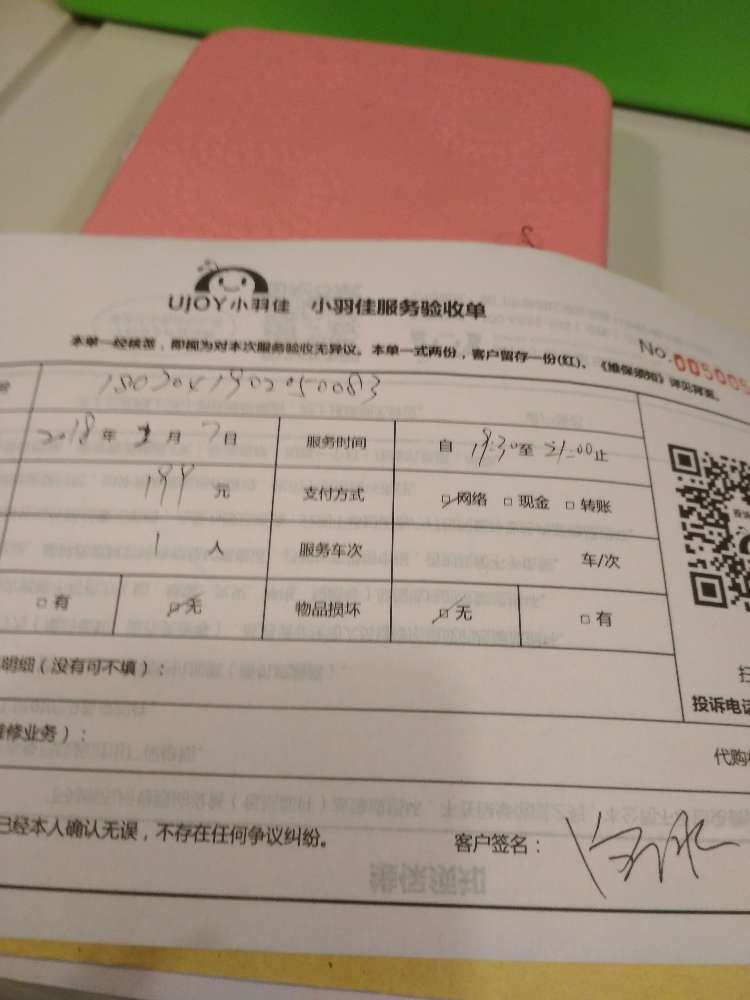 UJOY小羽佳 小羽佳服务验收单
No.005005
本单一经核签，即视为对本次服务验收无异议。本单一式两份，客户留存一份(红)。《维保须知》详见背面。
2018年 月7日 服务时间 自19:30至21:00止
199元 支付方式 □网络 □现金 □转账
1人 服务车次 车/次
□有 □无 物品损坏 □无 □有
明细（没有可不填）：
投诉电话
修业务）：
代购
已经本人确认无误，不存在任何争议纠纷。 客户签名：
维保须知